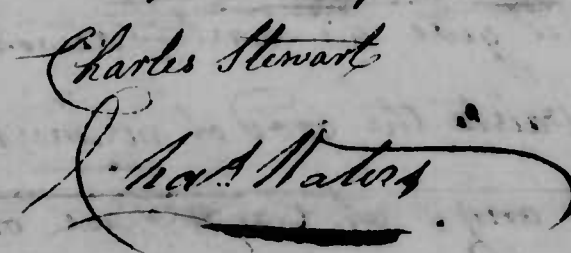 Charles Stewart
Chas Waters